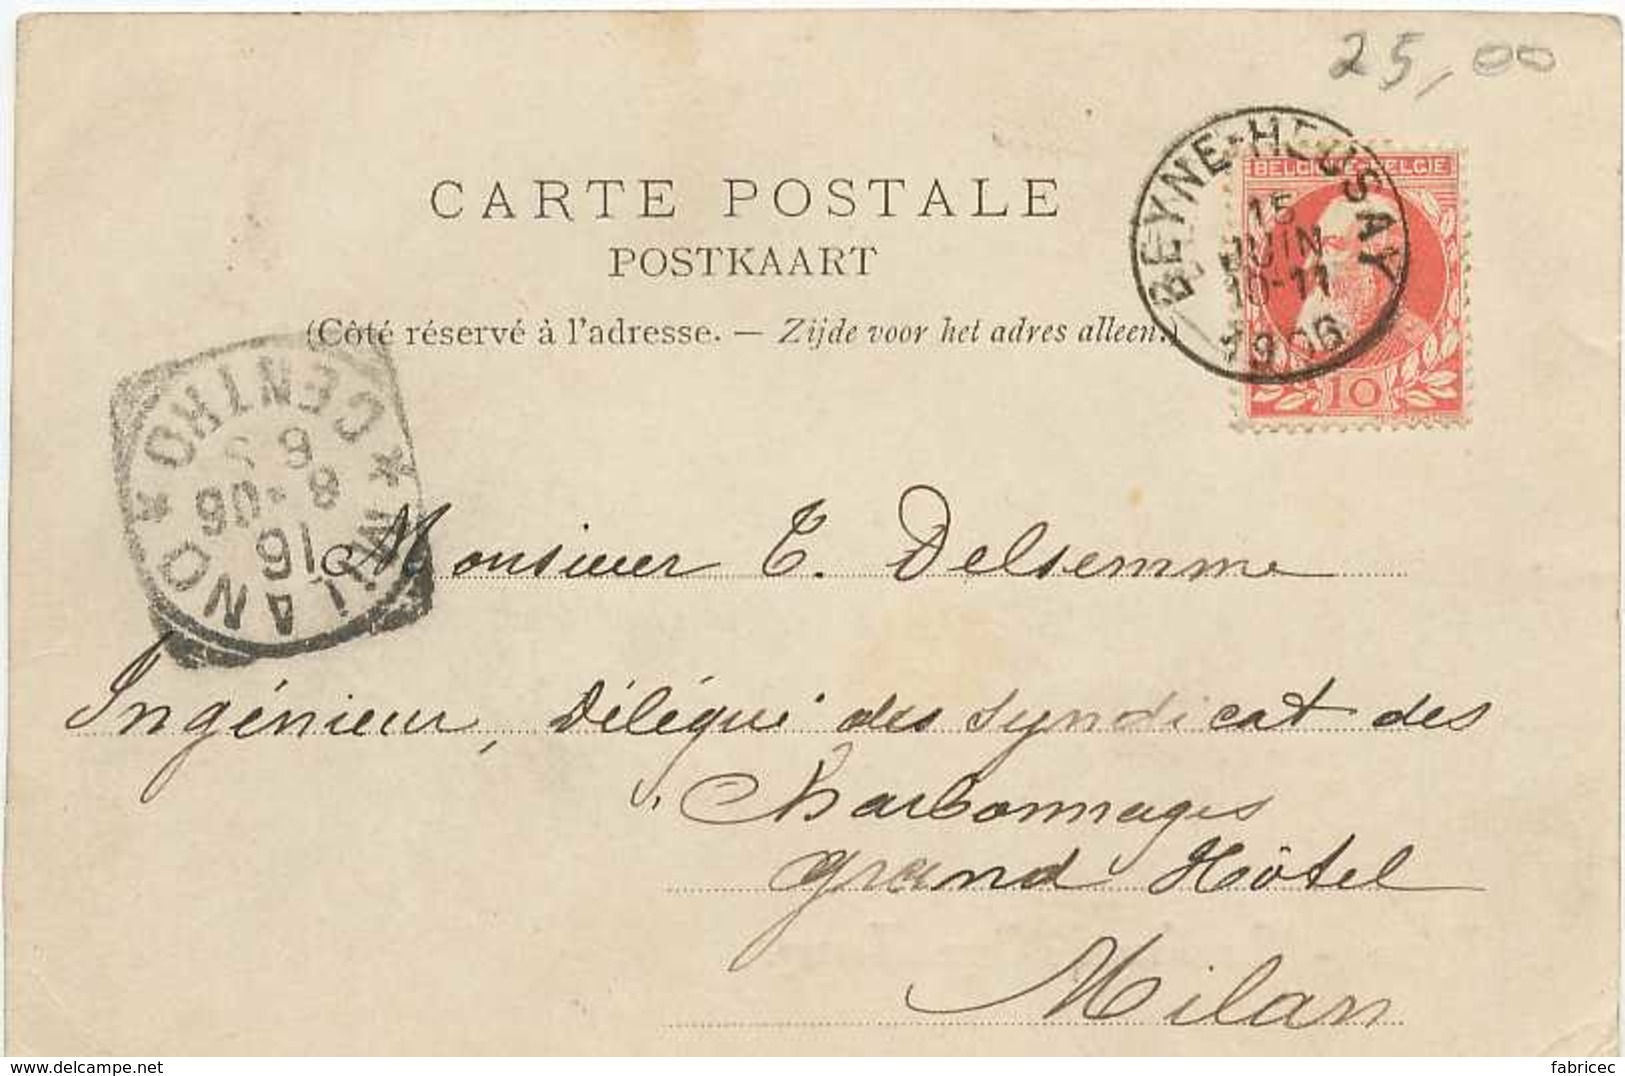 25,00
BEYNE-HEUSAY
15
JUIN
10-11
1906
BELGIQUE-BELGIE
10
CARTE POSTALE
POSTKAART
(Côté réservé à l'adresse. — Zijde voor het adres alleen.)
MILANO * CENTRO *
16
Monsieur E. Delsemme
Ingénieur, Délégué des Syndicat des
Charbonnages
grand Hôtel
Milan
delcampe.net
fabricec